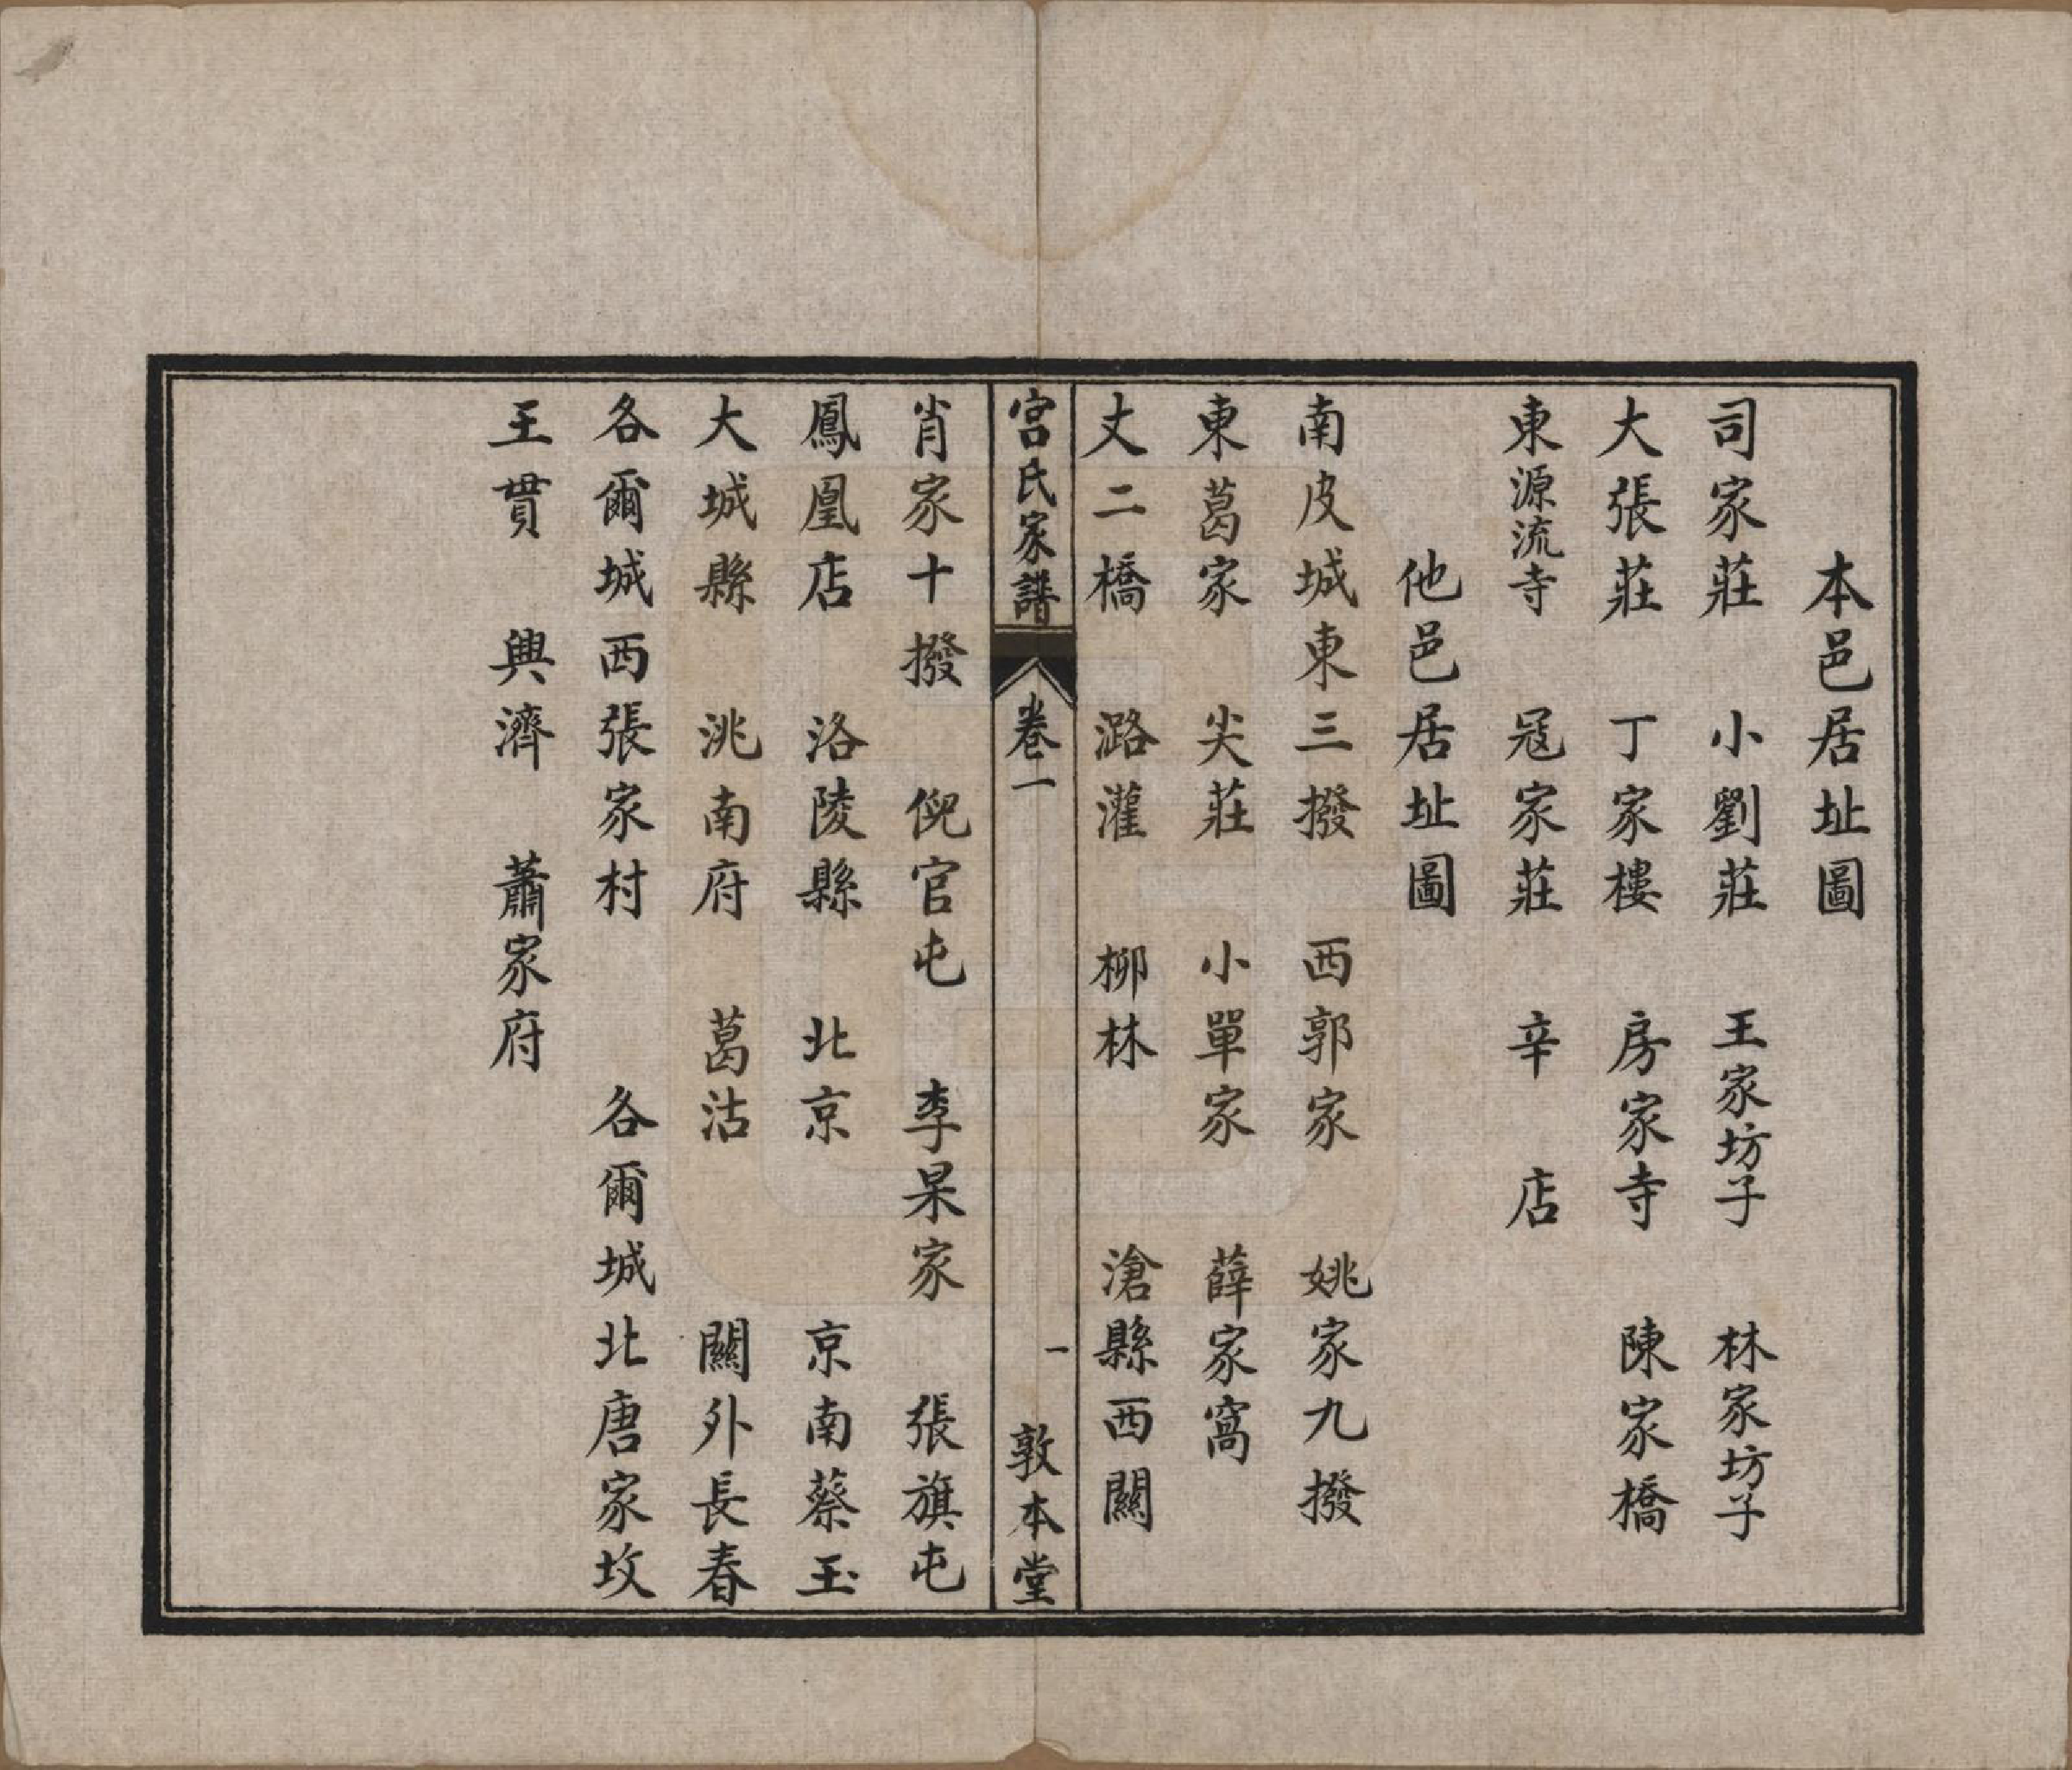 本邑居址圖
司家莊　小劉莊　王家坊子　林家坊子
大張莊　丁家樓　房家寺　陳家橋
東源流寺　冦家莊　辛店
他邑居址圖
南皮城東三撥　西郭家　姚家九撥
東葛家　尖莊　小單家　薛家窩
丈二橋　潞灌　柳林　滄縣西關
宮氏家譜　卷一　一　敦本堂
肖家十撥　倪官屯　李杲家　張旗屯
鳳凰店　洛陵縣　北京　京南蔡玉
大城縣　洮南府　葛沽　關外長春
各爾城西張家村　各爾城北唐家坟
王貫　興濟　蕭家府